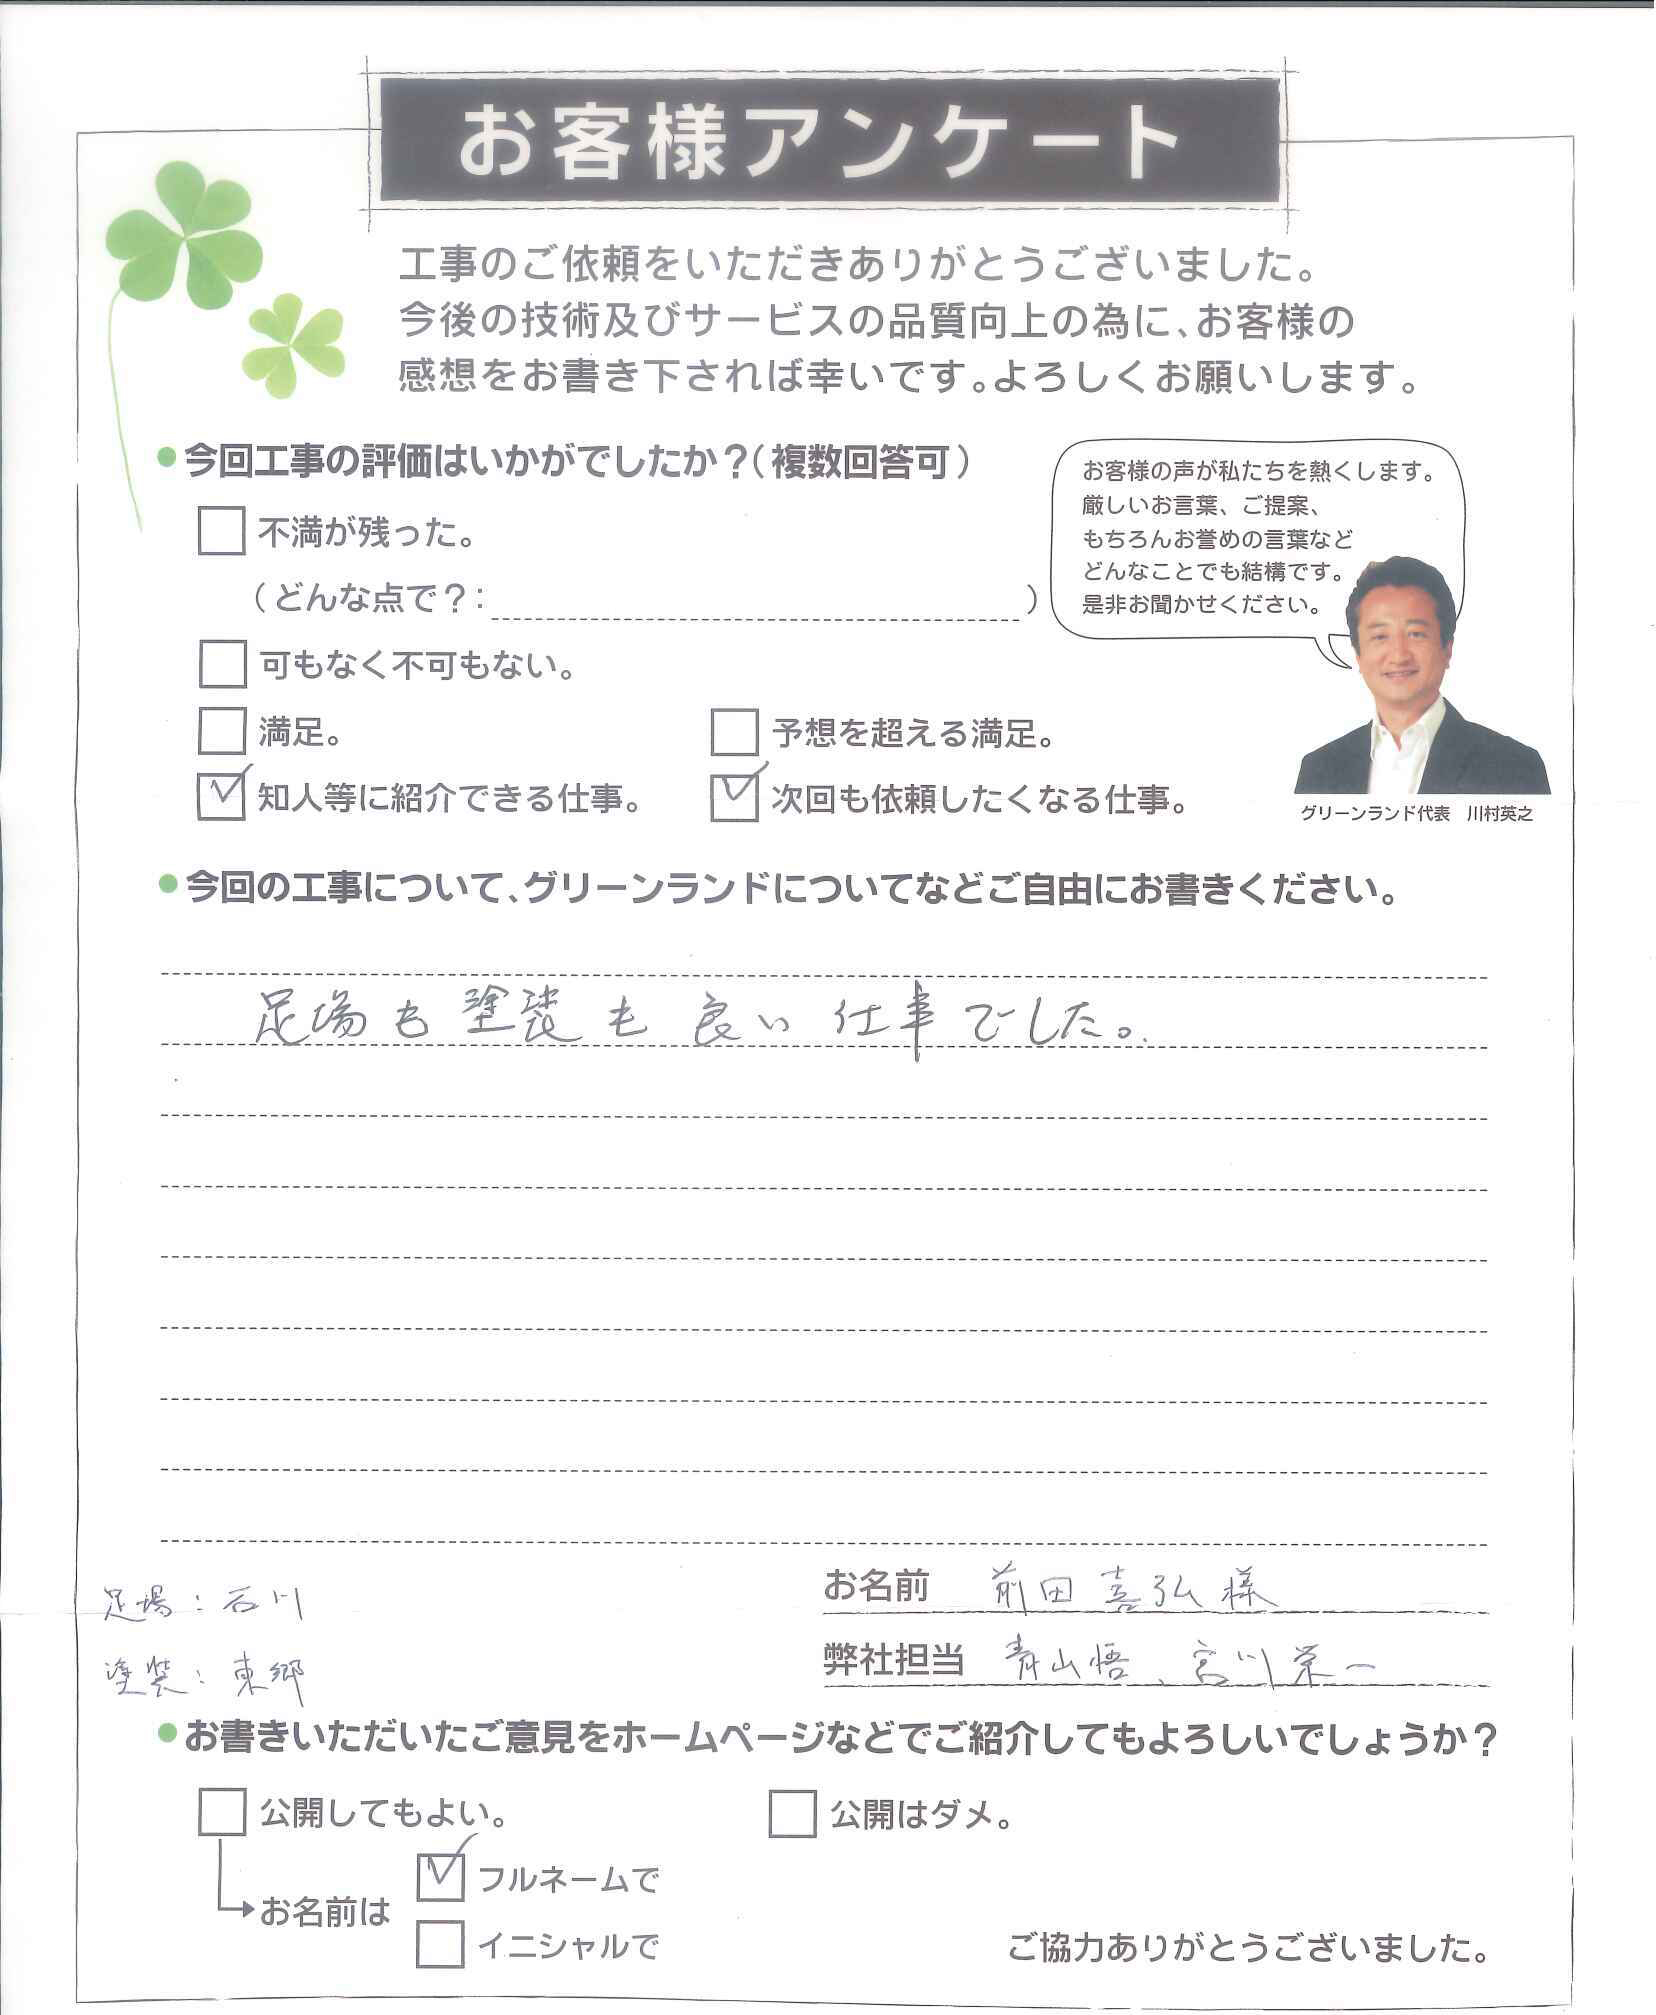 お客様アンケート
工事のご依頼をいただきありがとうございました。
今後の技術及びサービスの品質向上の為に、お客様の
感想をお書き下されば幸いです。よろしくお願いします。
今回工事の評価はいかがでしたか？（複数回答可）
不満が残った。
（どんな点で？：　）
可もなく不可もない。
満足。
予想を超える満足。
知人等に紹介できる仕事。
次回も依頼したくなる仕事。
お客様の声が私たちを熱くします。
厳しいお言葉、ご提案、
もちろんお誉めの言葉など
どんなことでも結構です。
是非お聞かせください。
グリーンランド代表　川村英之
今回の工事について、グリーンランドについてなどご自由にお書きください。
足場も塗装も良い仕事でした。
足場：石川
塗装：東郷
お名前　前田喜弘様
弊社担当　青山悟、宮川栄一
お書きいただいたご意見をホームページなどでご紹介してもよろしいでしょうか？
公開してもよい。
公開はダメ。
お名前は
フルネームで
イニシャルで
ご協力ありがとうございました。